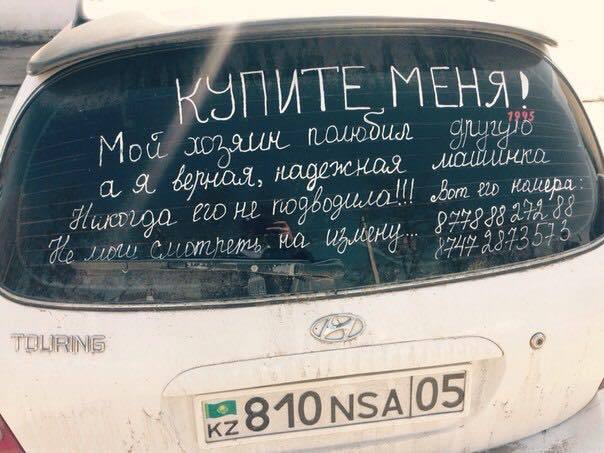 КУПИТЕ МЕНЯ!
1995
Мой хозяин полюбил другую
а я верная, надежная машинка
Никогда его не подводила!!! Вот его номера:
Не могу смотреть на измену... 8778 88 272 88
8747 2873573
TOURING
KZ 810NSA 05